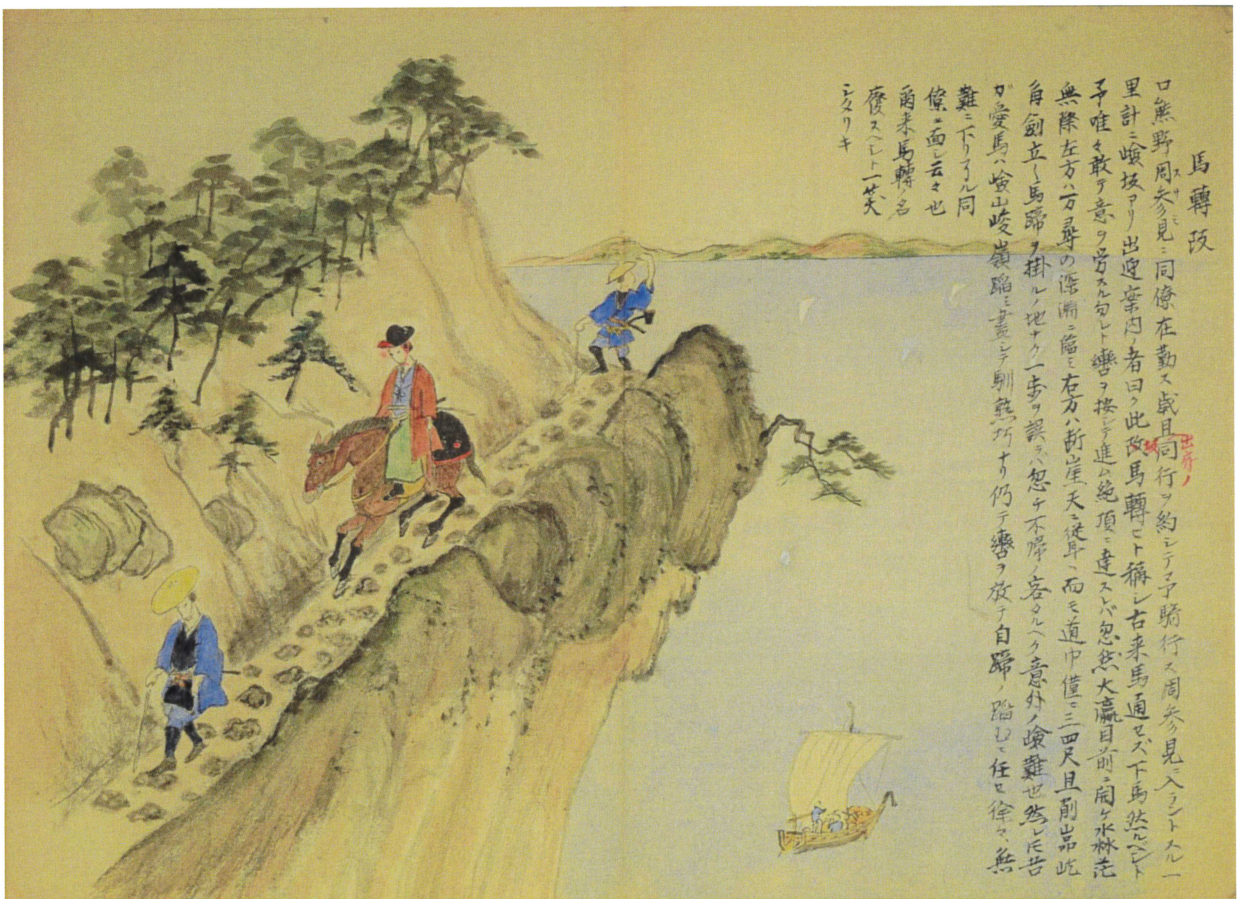 馬轉坂
口熊野周参見ニ同僚在勤ス歳旦同行ヲ約シテ予騎行ス周参見ニ入ラントスル一
スサミ
出府ノ
里計ニ嶮坂アリ出迎案内ノ者曰ク此坂馬轉ヒト稱シ古来馬通セズ下馬然ルベシト
予唯々敢テ意ヲ労スル勿レト轡ヲ按シテ進ム絶頂ニ達スレバ忽然大瀛目前ニ開ケ水淼茫
無際左方ハ万尋の深淵ニ臨ミ右方ハ断崖天ニ従耳而モ道巾僅ニ三四尺且削岩昂屹
角劍立シ馬蹄ヲ掛ルノ地ナク一歩ヲ誤ラバ忽チ不帰ノ客タルヘク意外ノ嶮難也然レ𪜈吾
ガ愛馬ハ嶮山峻嶺踏ミ盡シテ馴熟ナリ仍テ轡ヲ放チ自蹄ノ踏ムニ任セ徐々無
難ニ下リ了ル同
僚ニ面シ云々也
爾来馬轉ノ名
廢スヘシト一笑
シタリキ